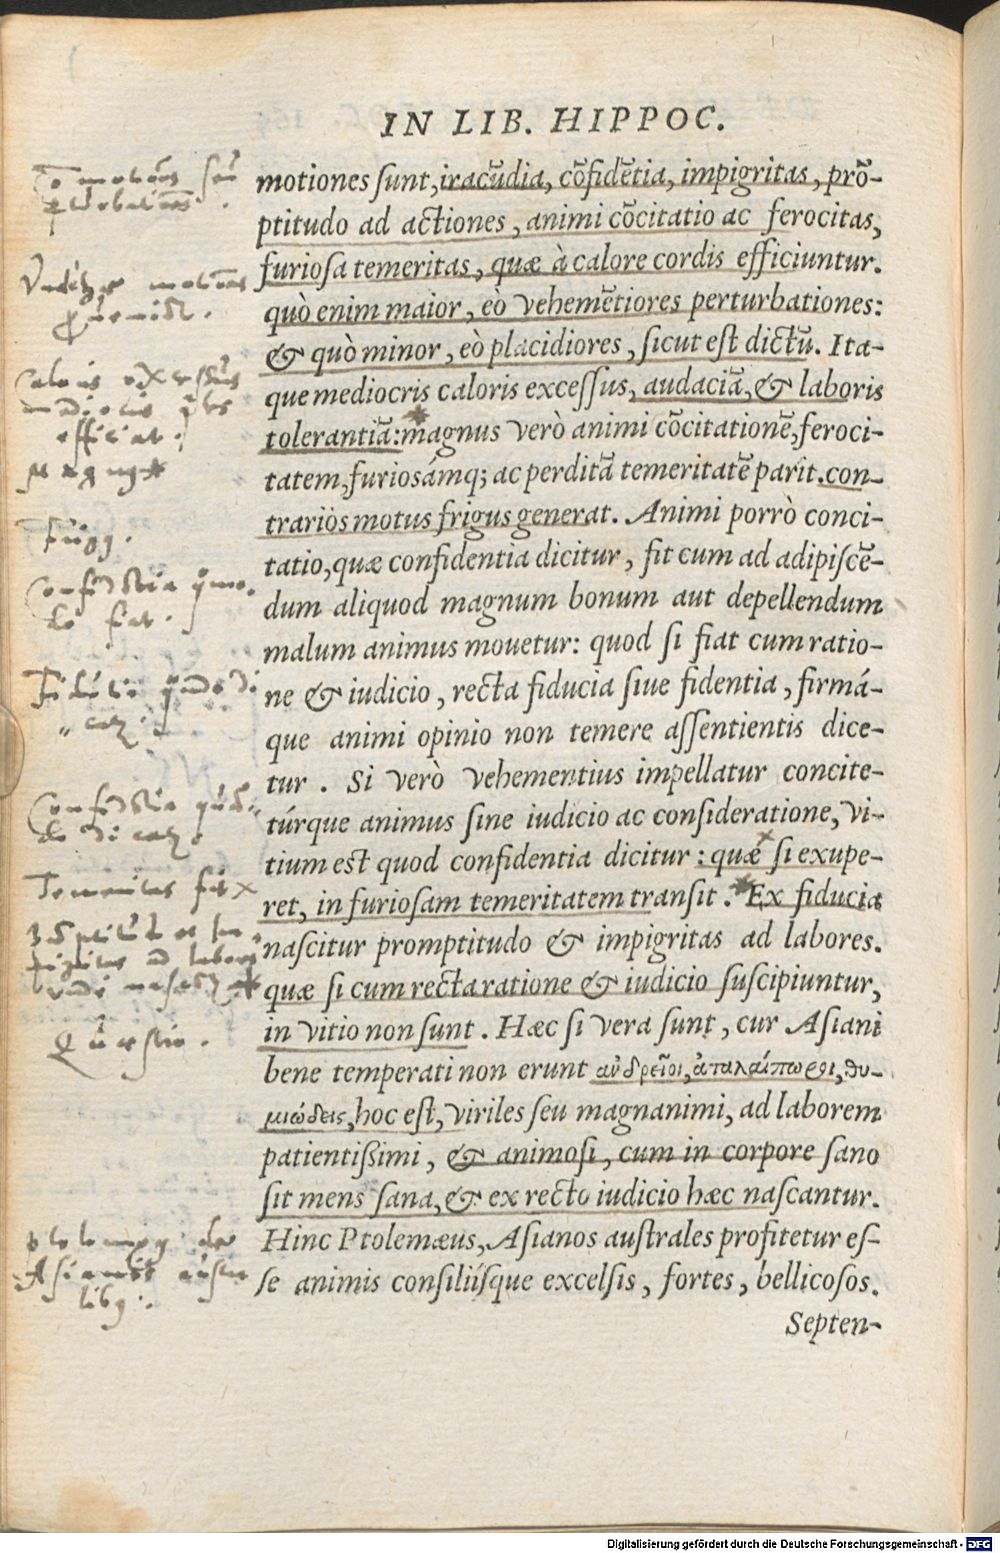 IN LIB. HIPPOC.
motiones sunt, iracūdia, cōfidētia, impigritas, prō-
ptitudo ad actiones, animi cōcitatio ac ferocitas,
furiosa temeritas, quæ à calore cordis efficiuntur.
quò enim maior, eò vehemētiores perturbationes:
& quò minor, eò placidiores, sicut est dictū. Ita-
que mediocris caloris excessus, audaciā, & laboris
tolerantiā: magnus verò animi cōcitationē, feroci-
tatem, furiosámq; ac perditā temeritatē parit. con-
trarios motus frigus generat. Animi porrò conci-
tatio, quæ confidentia dicitur, fit cum ad adipiscē-
dum aliquod magnum bonum aut depellendum
malum animus mouetur: quod si fiat cum ratio-
ne & iudicio, recta fiducia siue fidentia, firmá-
que animi opinio non temere assentientis dice-
tur. Si verò vehementius impellatur concite-
túrque animus sine iudicio ac consideratione, vi-
tium est quod confidentia dicitur: quæ si exupe-
ret, in furiosam temeritatem transit. Ex fiducia
nascitur promptitudo & impigritas ad labores.
quæ si cum recta ratione & iudicio suscipiuntur,
in vitio non sunt. Hæc si vera sunt, cur Asiani
bene temperati non erunt ἀνδρεῖοι, ἀταλαίπωροι, θυ-
μιώδεις, hoc est, viriles seu magnanimi, ad laborem
patientißimi, & animosi, cum in corpore sano
sit mens sana, & ex recto iudicio hæc nascantur.
Hinc Ptolemæus, Asianos australes profitetur es-
se animis consiliísque excelsis, fortes, bellicosos.
Septen-
efficiat.
Frigg.
fiat.
Temeritas fit
Quæstio.
Digitalisierung gefördert durch die Deutsche Forschungsgemeinschaft - DFG